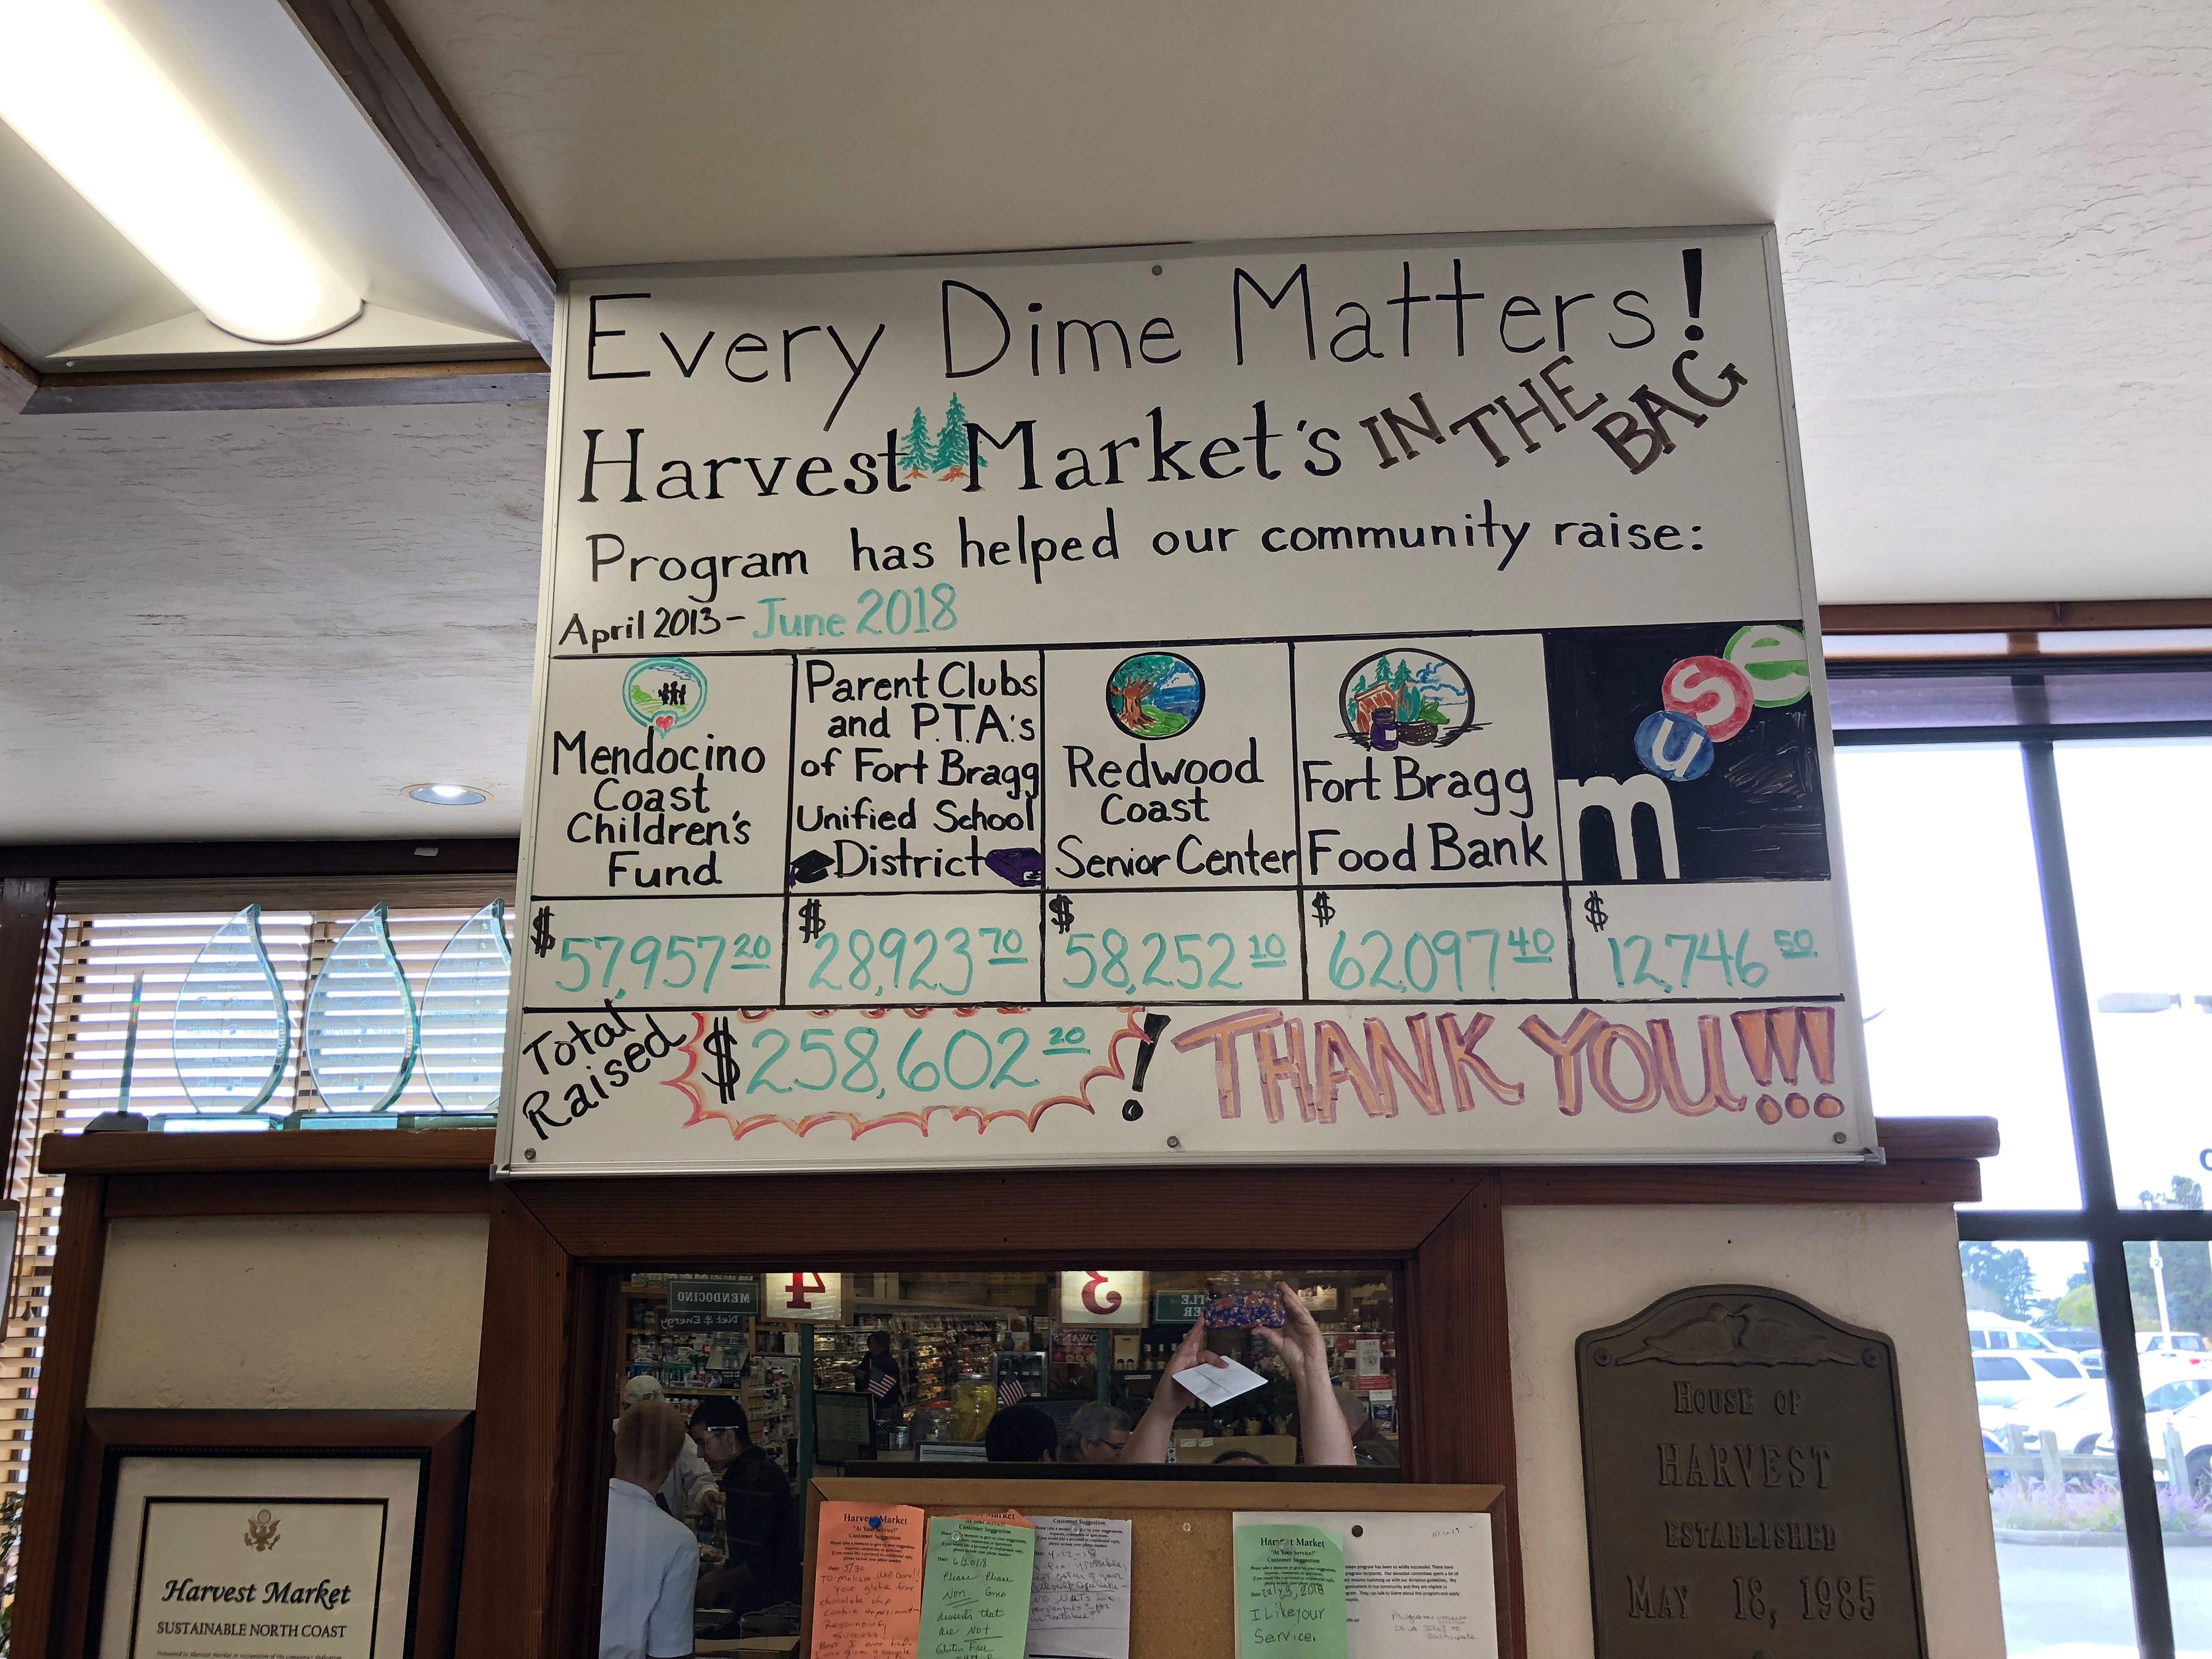 Every Dime Matters!
Harvest Market's IN THE BAG
Program has helped our community raise:
April 2013 - June 2018
Mendocino
Coast
Children's
Fund
Parent Clubs
and P.T.A.'s
of Fort Bragg
Unified School
District
Redwood
Coast
Senior Center
Fort Bragg
Food Bank
muse
$57,957 20
$28,923 70
$58,252 10
$62,097 40
$12,746 50
Total
Raised
$258,602 20!
THANK YOU!!!
MENDOCINO
4
3
Diet & Energy
Harvest Market
SUSTAINABLE NORTH COAST
Harvest Market
"At Your Service!"
Customer Suggestion
5/30
Market
Customer Suggestion
Date: 6/20/18
Please Please
Non Gmo
desserts that
are Not
Gluten Free
Customer Suggestion
4-12-18
Harvest Market
"At Your Service!"
Customer Suggestion
Date: July 3, 2018
I Like your
Service.
HOUSE OF
HARVEST
ESTABLISHED
MAY 18, 1985